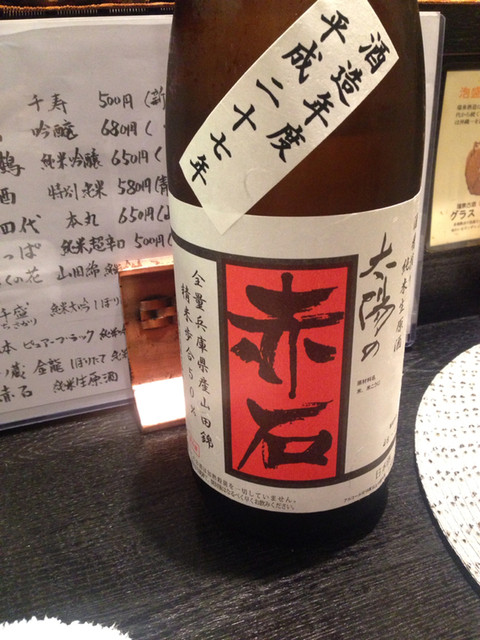 酒造年度
平成二十七年
純米生原酒
太陽の
赤石
全量兵庫県産山田錦
精米歩合50%
原材料名
米、米こうじ
千寿 500円
吟醸 680円
鶴 純米吟醸 650円
酒 特別純米 580円
四代 本丸 650円
っぱ 純米超辛口 500円
くの花 山田錦
盛 純米大吟 しぼり
本 ピュアーブラック 純米
蔵 金龍 しぼりたて
赤石 純米生原酒
グラス